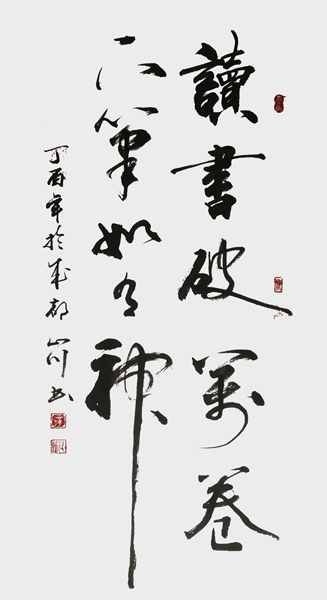 讀書破萬卷
下筆如有神
丁酉年於成都
山川書